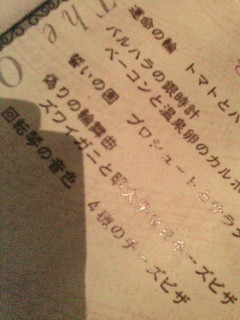 The O
運命の輪
トマトとハ
バルハラの銀時計
ベーコンと温泉卵のカルボ
誓いの園
プロシュートと
偽りの輪舞曲
ズワイガニと
ーズピザ
回転琴の音色
4種のチーズピザ